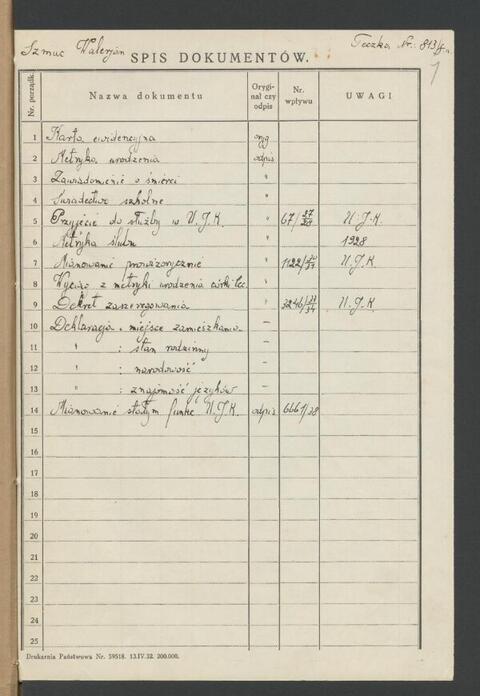 Szmuc Walerjan
Teczka Nr. 813/
1
SPIS DOKUMENTÓW.
Nr. porządk. Nazwa dokumentu Orygi-nał czy odpis Nr. wpływu UWAGI
1 Karta ewidencyjna oryg
2 Metryka urodzenia odpis
3 Zawiadomienie o śmierci "
4 Świadectwo szkolne "
5 Przyjęcie do służby w U.J.K. " 67/27/28 U.J.K.
6 Metryka ślubu " 1928
7 Mianowanie prowizorycznie " 1122/ U.J.K.
8 Wyciąg z metryki urodzenia córki "
9 Dekret zaszeregowania " 3246/ 34 U.J.K.
10 Deklaracja: miejsce zamieszkania –
11 " : stan rodzinny –
12 " : narodowość –
13 " : znajomość języków –
14 Mianowanie stałym funkc U.J.K. odpis 6661/38
15
16
17
18
19
20
21
22
23
24
25
Drukarnia Państwowa Nr. 59518. 13.IV.32. 200.000.